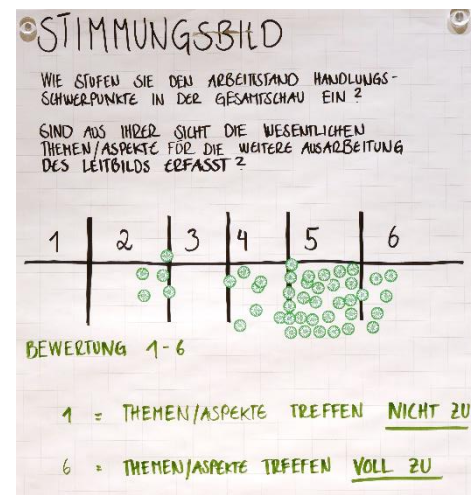 STIMMUNGSBILD
WIE STUFEN SIE DEN ARBEITSTAND HANDLUNGS-
SCHWERPUNKTE IN DER GESAMTSCHAU EIN?
SIND AUS IHRER SICHT DIE WESENTLICHEN
THEMEN/ASPEKTE FÜR DIE WEITERE AUSARBEITUNG
DES LEITBILDS ERFASST?
1 2 3 4 5 6
BEWERTUNG 1-6
1 = THEMEN/ASPEKTE TREFFEN NICHT ZU
6 = THEMEN/ASPEKTE TREFFEN VOLL ZU